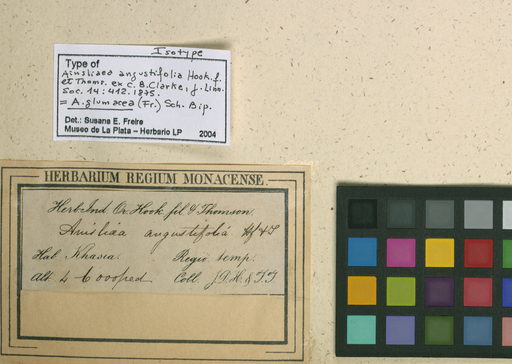 Isotype
Type of
Ainsliaea angustifolia Hook. f.
et Thoms. ex C. B. Clarke, J. Linn.
Soc. 14: 412. 1875.
= A. glumacea (Fr.) Sch. Bip.
Det.: Susana E. Freire
Museo de La Plata – Herbario LP 2004
HERBARIUM REGIUM MONACENSE.
Herb. Ind. Or. Hook. fil. & Thomson
Ainsliaea angustifolia Hf & T
Hab. Khasia. Regio temp.
Alt. 4-6000 ped. Coll. J.D.H. & T.T.